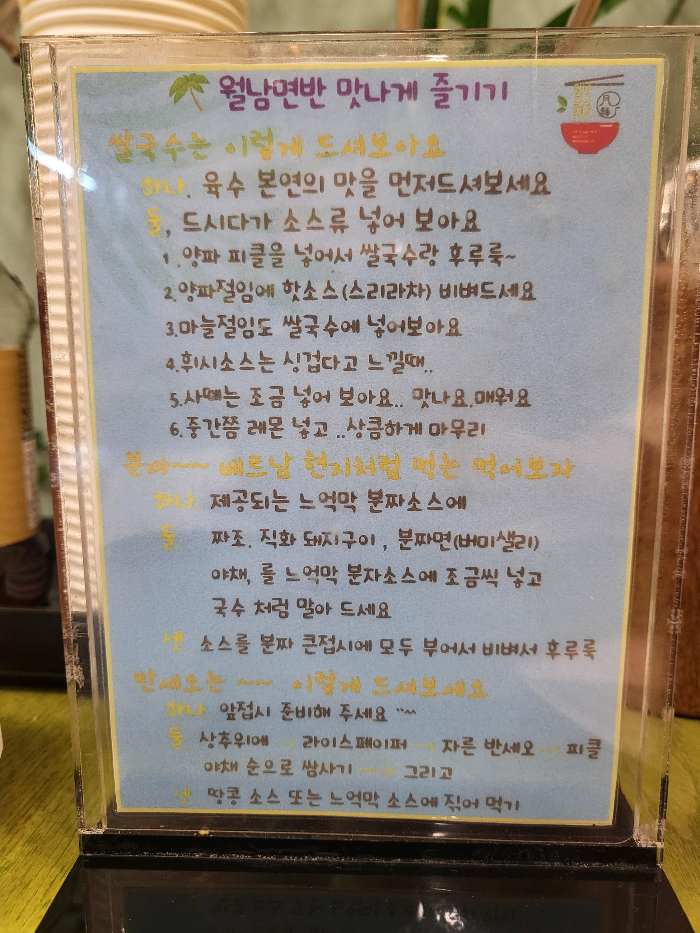 월남면반 맛나게 즐기기
쌀국수는 이렇게 드셔보아요
하나. 육수 본연의 맛을 먼저드셔보세요
둘, 드시다가 소스류 넣어 보아요
1. 양파 피클을 넣어서 쌀국수랑 후루룩~
2. 양파절임에 핫소스(스리라차) 비벼드세요
3. 마늘절임도 쌀국수에 넣어보아요
4. 휘시소스는 싱겁다고 느낄때..
5. 사떼는 조금 넣어 보아요.. 맛나요.매워요
6. 중간쯤 레몬 넣고 ..상큼하게 마무리
분짜~~ 베트남 현지처럼 먹는 먹어보자
하나 제공되는 느억막 분짜소스에
둘 짜조. 직화 돼지구이 , 분짜면(버미샐리)
야채, 를 느억막 분자소스에 조금씩 넣고
국수 처럼 말아 드세요
셋 소스를 분짜 큰접시에 모두 부어서 비벼서 후루룩
반세오는 ~~ 이렇게 드셔보세요
하나 앞접시 준비해 주세요 ^^~
둘 상추위에 → 라이스페이퍼 → 자른 반세오 → 피클
야채 순으로 쌈사기 → 그리고
셋 땅콩 소스 또는 느억막 소스에 직어 먹기